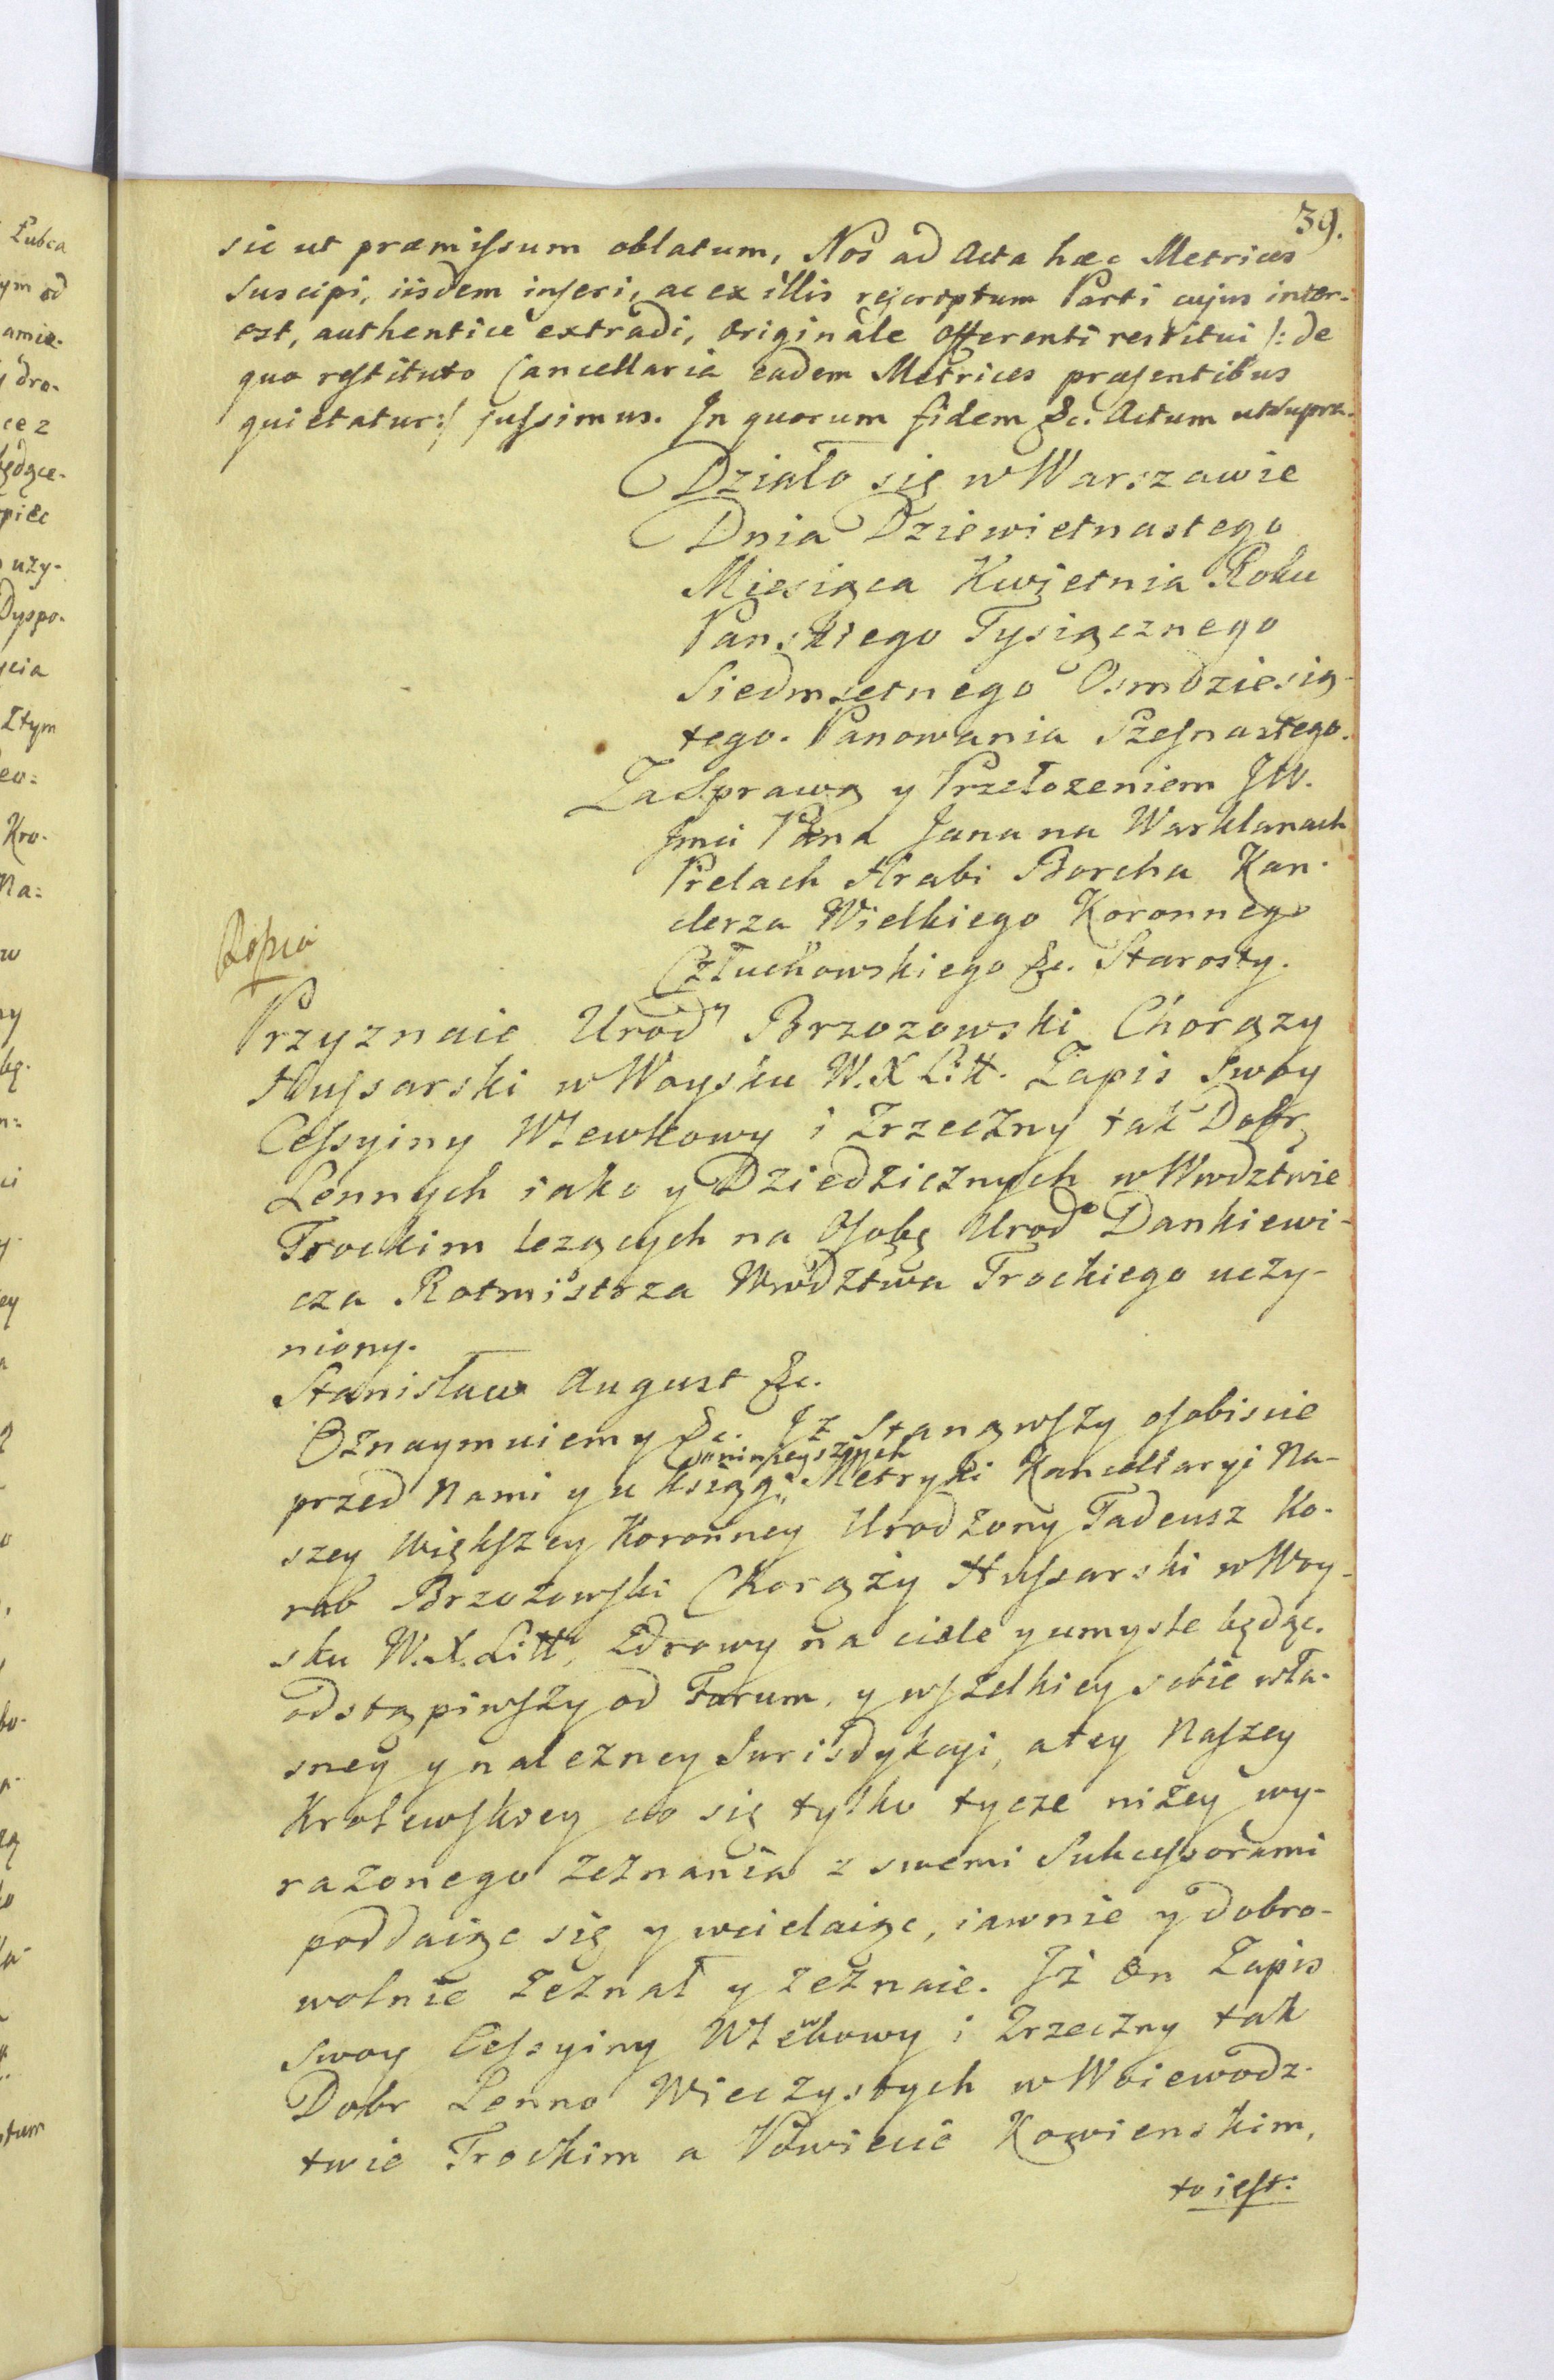 39.
sic ut præmissum oblatum, Nos ad Acta hæc Metrices
suscipi, iisdem inseri, ac ex illis rescriptum Parti cujus inter-
est, authentice extradi, Originale Offerenti restitui /: de
quo restituto Cancellaria eadem Metrices præsentibus
quietatur :/ jussimus. In quorum fidem &c. Actum ut supra.
Działo się w Warszawie
Dnia Dziewietnastego
Miesiąca Kwietnia Roku
Panskiego Tysiącznego
Siedmsetnego Osmdziesią-
tego. Panowania Szesnastego.
Za Sprawą y Przełozeniem JW.
Jmci Pana Jana na Warklanach
Prelach Hrabi Borcha Kan-
clerza Wielkiego Koronnego
Człuchowskiego &c. Starosty.
Kopia
Przyznaie Urody Brzozowski Chorązy
Hussarski w Woysku W. X Litt. Zapis swoy
Cessyiny Wlewkowy i Zrzeczny tak Dobr
Lennych iako y Dziedzicznych w Wwdztwie
Trockim lezących na Osobę Urodo Dankiewi-
cza Rotmistrza Wwdztwa Trockiego uczy-
niony.
Stanisław August &c.
Oznaymuiemy &c. Iż Stanąwszy osobiscie
przed Nami y u Ksiąg ninieyszych Metryki Kancellaryi Na-
szey Większey Koronney Urodzony Tadeusz Ko-
rab Brzozowski Chorąży Hussarski w Woy-
sku W. X. Litt, Zdrowy na ciele y umysle będąc.
odstąpiwszy od Forum, y wszelkiey sobie wła-
sney y należney Jurisdykcyi, a tey Naszey
Krolewskiey co się tylko tycze niżey wy-
rażonego zeznania z swemi Sukcessorami
poddaiąc się y wcielaiąc, iawnie y dobro-
wolnie zeznał y zeznaie. Iż On Zapis
swoy Cessyiny Wlewkowy i Zrzeczny tak
Dobr Lenno Wieczystych w Woiewodz-
twie Trockim a Powiecie Kowienskim,
to iest: